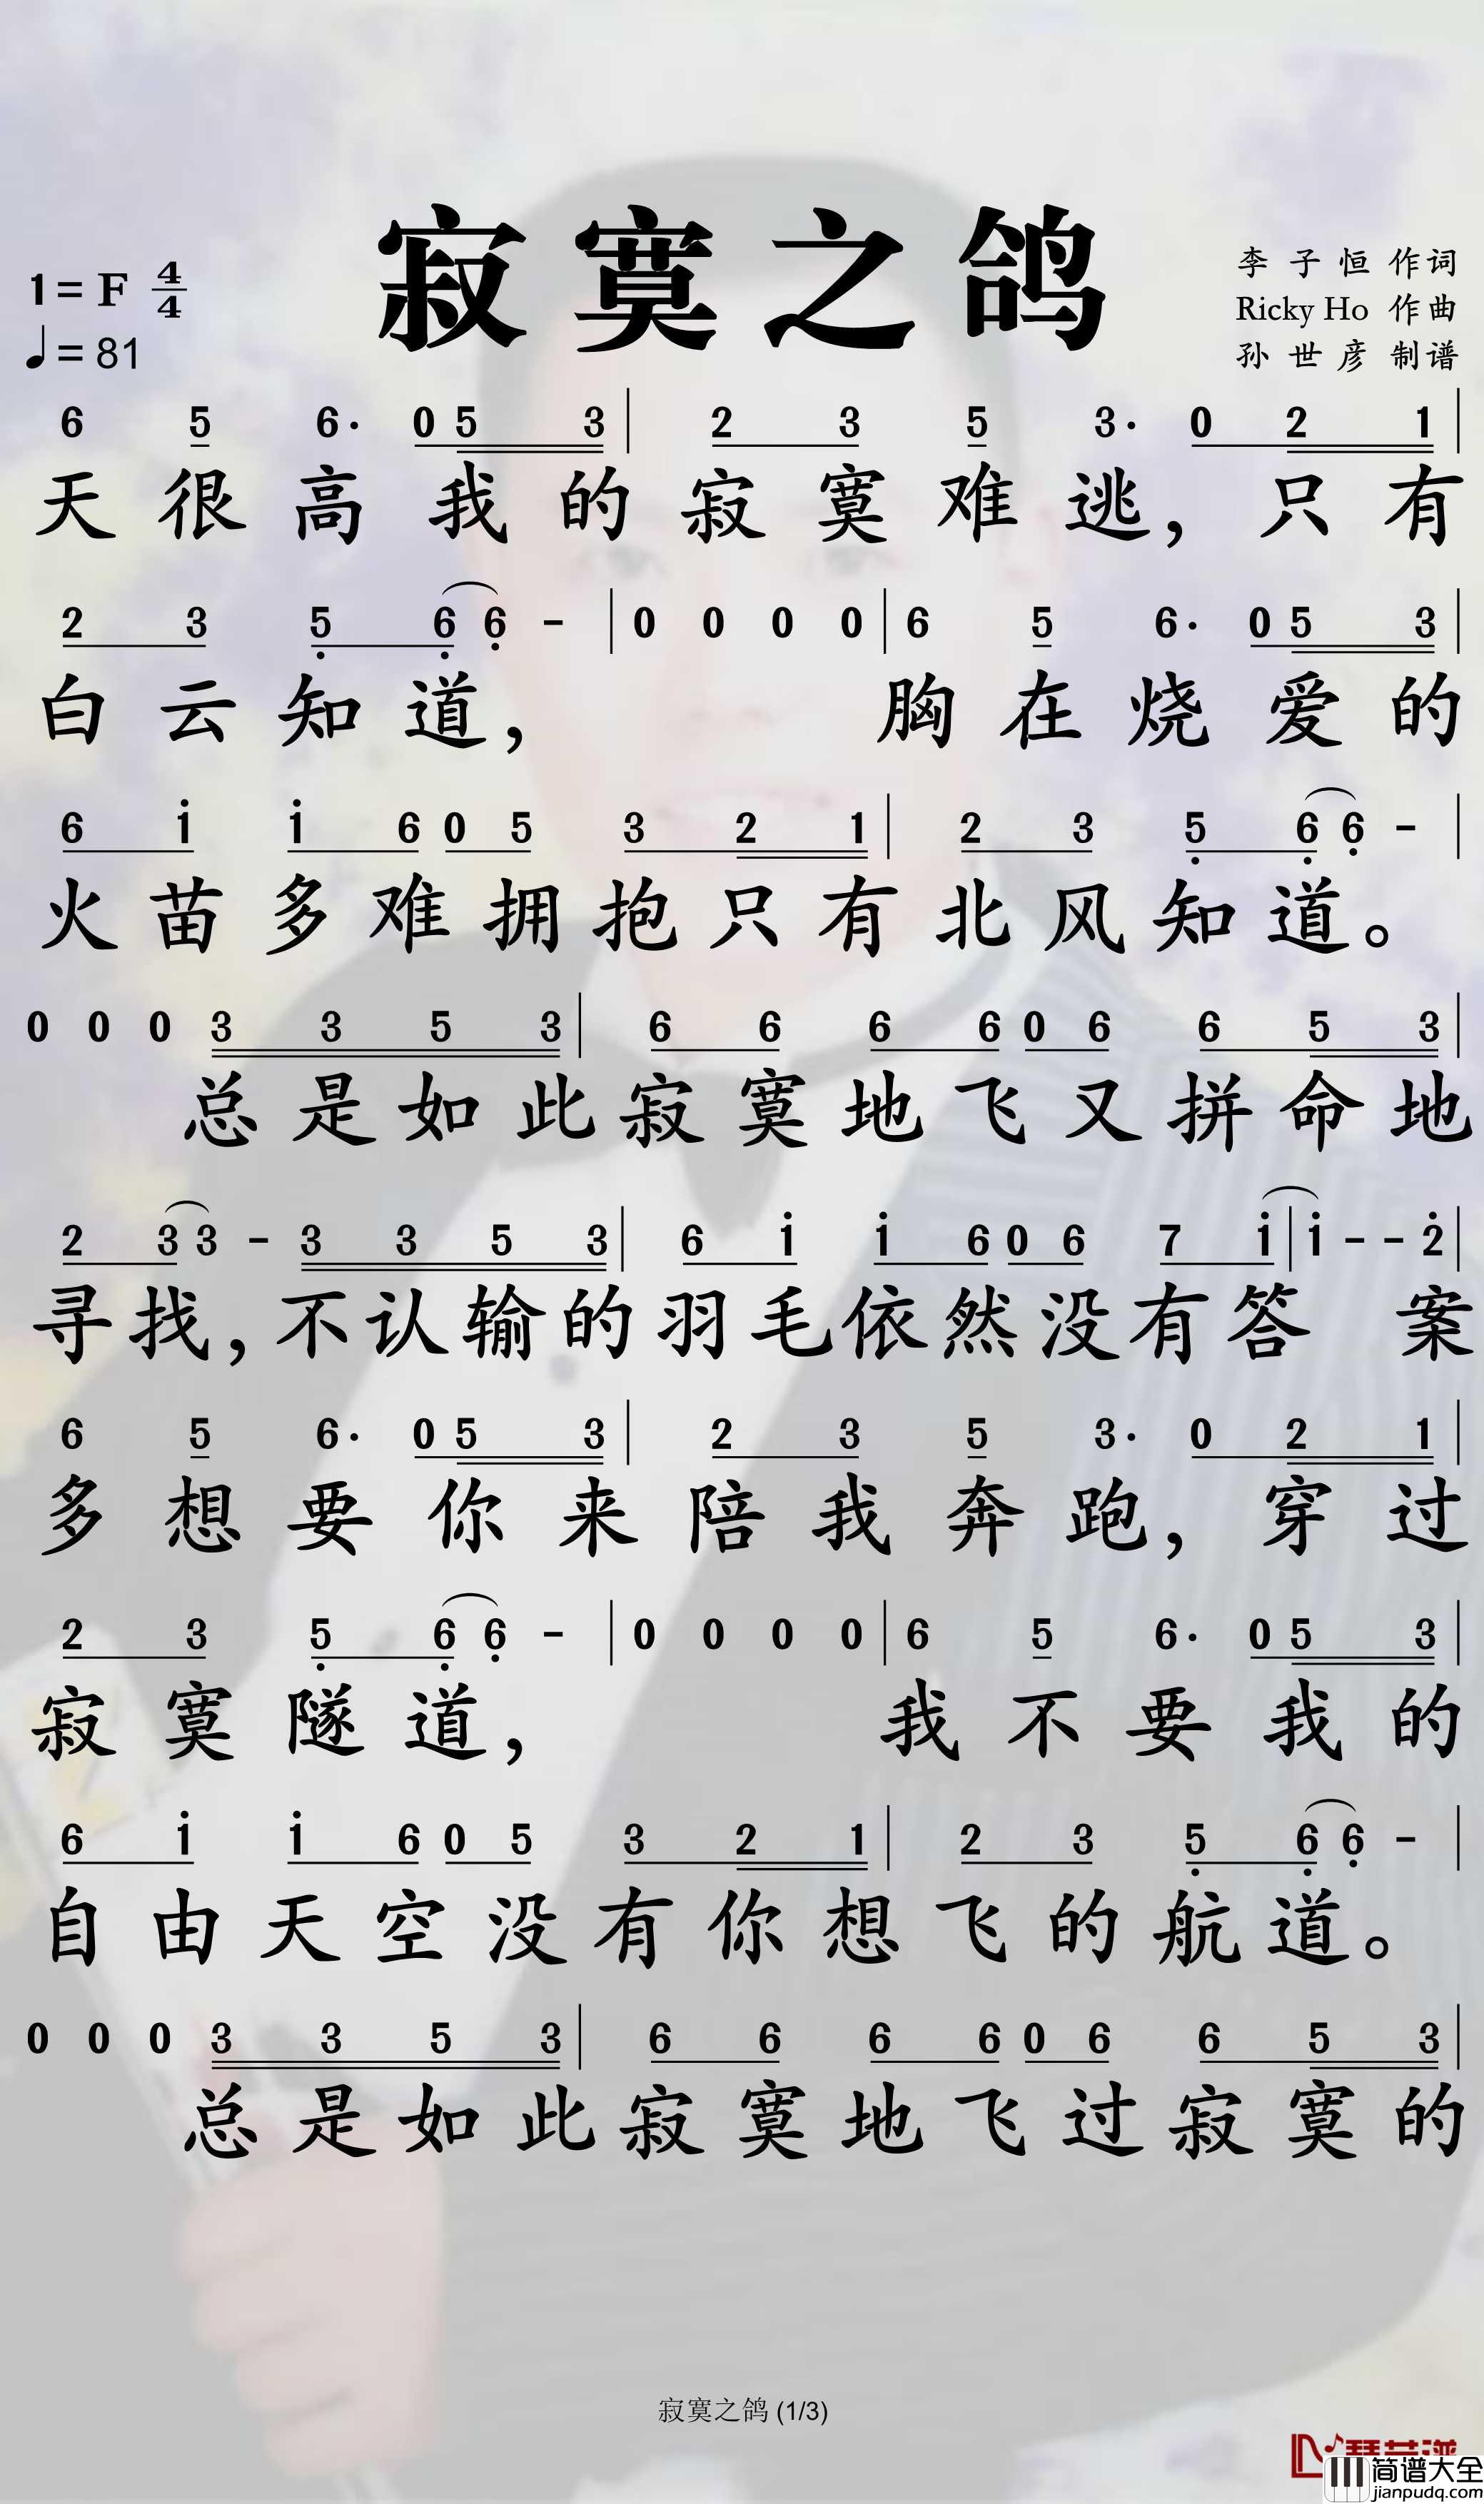 寂寞之鸽
1=F 4/4
♩=81
李子恒 作词
Ricky Ho 作曲
孙世彦 制谱
6 5 6· 0 5 3 | 2 3 5 3· 0 2 1 |
天很高我的寂寞难逃，只有
2 3 5̣ 6̣ 6̣ - | 0 0 0 0 | 6 5 6· 0 5 3 |
白云知道， 胸在烧爱的
6 i i 6 0 5 3 2 1 | 2 3 5̣ 6̣ 6̣ - |
火苗多难拥抱只有北风知道。
0 0 0 3 3 5 3 | 6 6 6 6 0 6 6 5 3 |
总是如此寂寞地飞又拼命地
2 3 3 - 3 3 5 3 | 6 i i 6 0 6 7 i | i - - 2̇ |
寻找，不认输的羽毛依然没有答 案
6 5 6· 0 5 3 | 2 3 5 3· 0 2 1 |
多想要你来陪我奔跑，穿过
2 3 5̣ 6̣ 6̣ - | 0 0 0 0 | 6 5 6· 0 5 3 |
寂寞隧道， 我不要我的
6 i i 6 0 5 3 2 1 | 2 3 5̣ 6̣ 6̣ - |
自由天空没有你想飞的航道。
0 0 0 3 3 5 3 | 6 6 6 6 0 6 6 5 3 |
总是如此寂寞地飞过寂寞的
寂寞之鸽 (1/3)
简谱大全
jianpudq.com